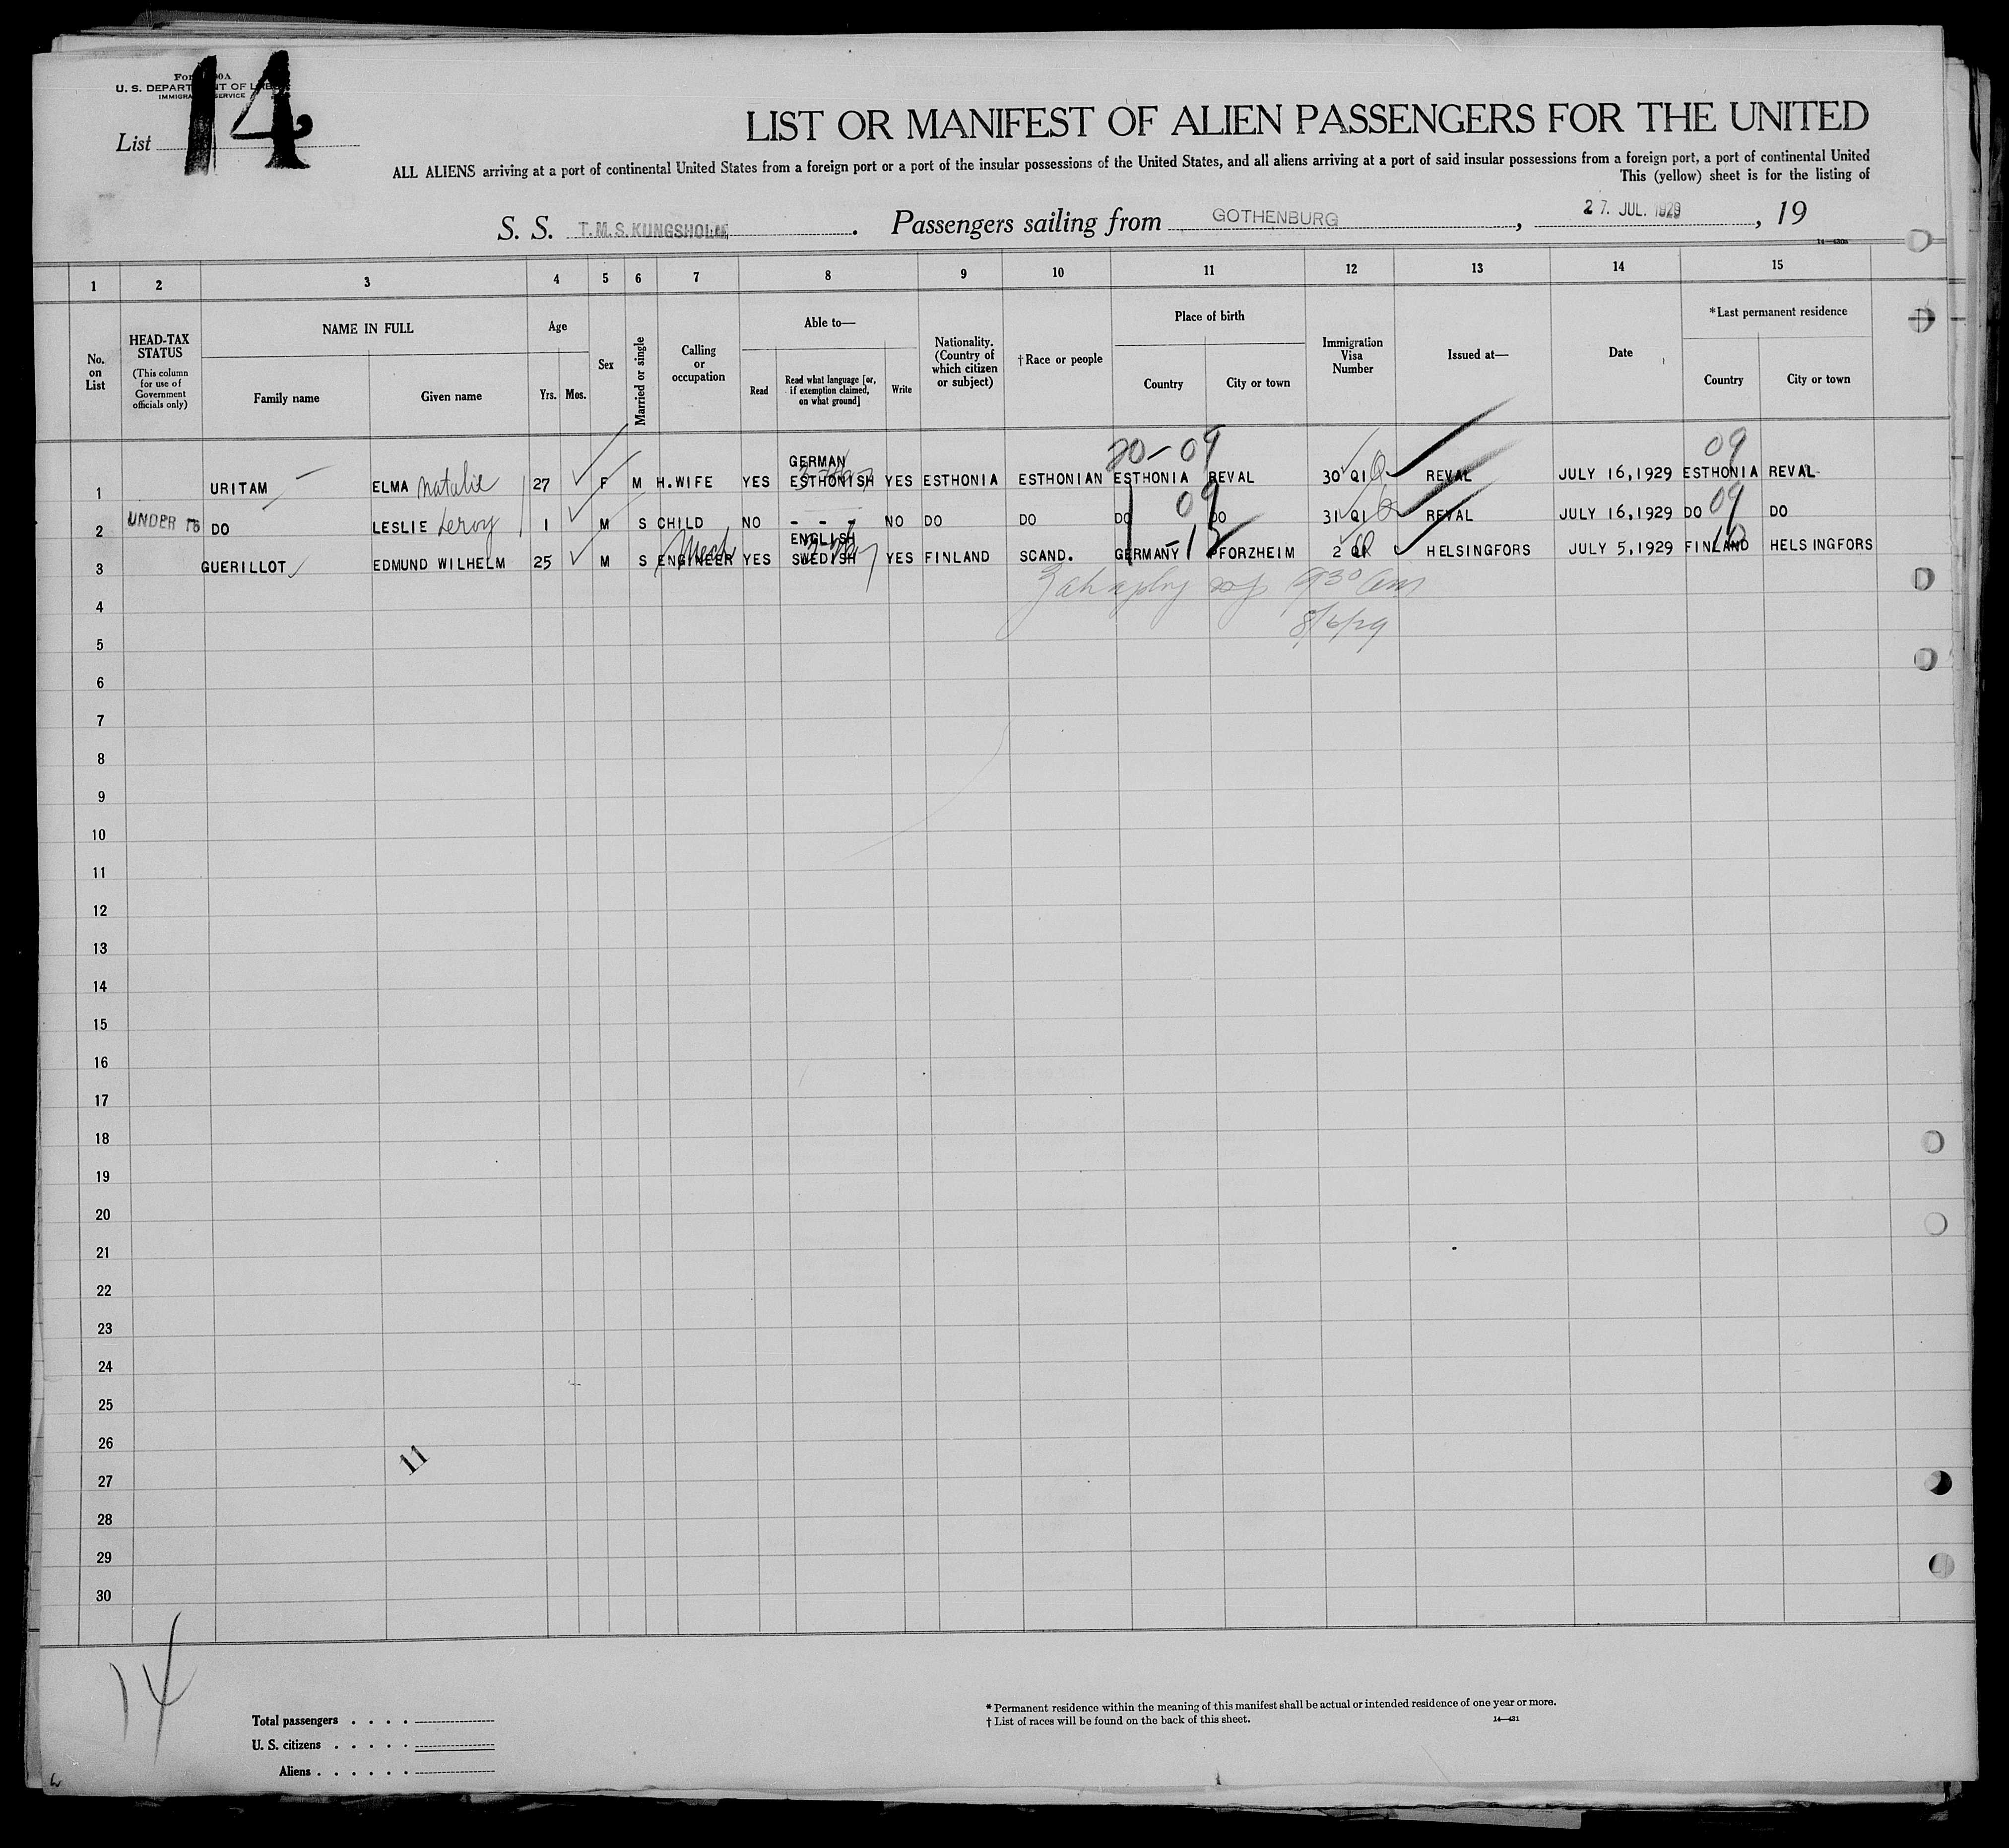 U. S. DEPARTMENT OF LABOR
IMMIGRATION SERVICE
List 14
LIST OR MANIFEST OF ALIEN PASSENGERS FOR THE UNITED
ALL ALIENS arriving at a port of continental United States from a foreign port or a port of the insular possessions of the United States, and all aliens arriving at a port of said insular possessions from a foreign port, a port of continental United
This (yellow) sheet is for the listing of
S. S. T.M.S. KUNGSHOLM. Passengers sailing from GOTHENBURG, 27. JUL. 1929, 19
1 2 3 4 5 6 7 8 9 10 11 12 13 14 15
No. on List
HEAD-TAX STATUS (This column for use of Government officials only)
NAME IN FULL
Family name Given name
Age
Yrs. Mos.
Sex
Married or single
Calling or occupation
Able to—
Read Read what language [or, if exemption claimed, on what ground] Write
Nationality. (Country of which citizen or subject)
†Race or people
Place of birth
Country City or town
Immigration Visa Number
Issued at—
Date
*Last permanent residence
Country City or town
20-09 09
GERMAN
1 URITAM ELMA Natalie 27 F M H.WIFE YES ESTHONISH YES ESTHONIA ESTHONIAN ESTHONIA REVAL 30 QI REVAL JULY 16,1929 ESTHONIA REVAL
09 09
2 UNDER 16 DO LESLIE Leroy 1 M S CHILD NO - - - NO DO DO DO DO 31 QI REVAL JULY 16,1929 DO DO
ENGLISH
3 GUERILLOT EDMUND WILHELM 25 M S Mech ENGINEER YES SWEDISH YES FINLAND SCAND. GERMANY PFORZHEIM 2 QI HELSINGFORS JULY 5,1929 FINLAND HELSINGFORS
930 am
4
8/6/29
5
6
7
8
9
10
11
12
13
14
15
16
17
18
19
20
21
22
23
24
25
26
11
27
28
29
30
14
Total passengers . . . .
U. S. citizens . . . . .
Aliens . . . . . .
* Permanent residence within the meaning of this manifest shall be actual or intended residence of one year or more.
† List of races will be found on the back of this sheet. 14—431